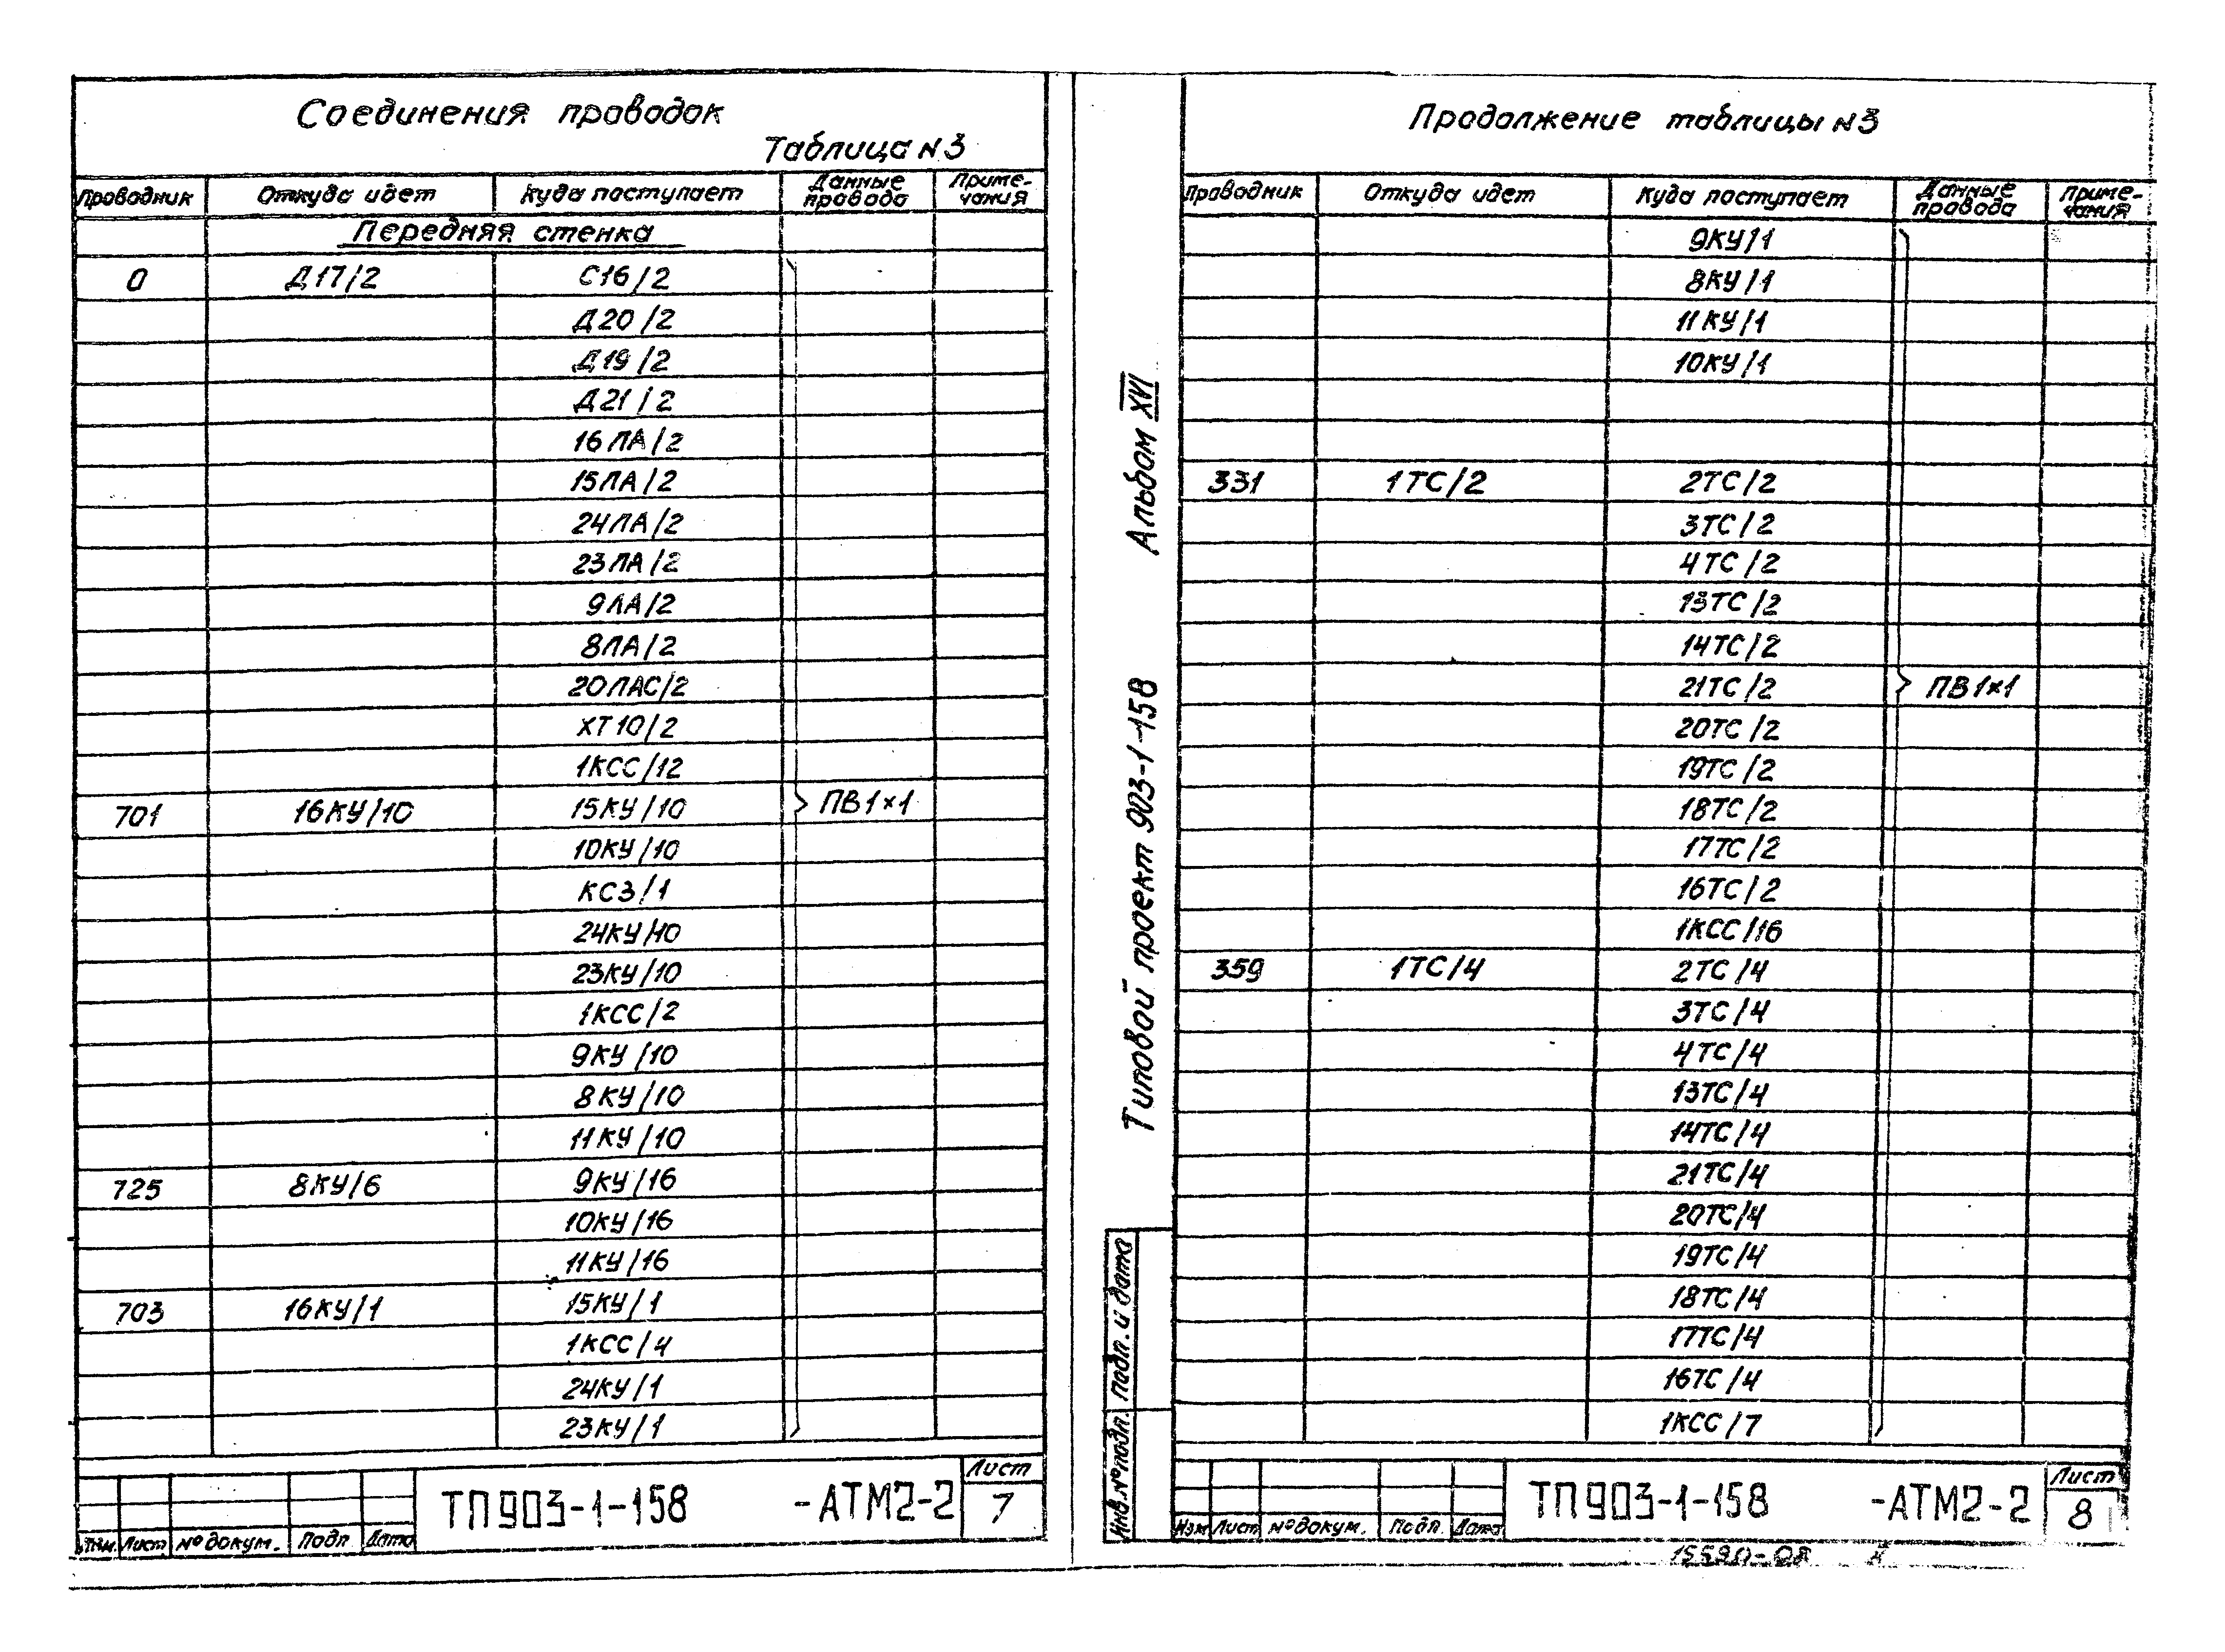 Соединения проводок
Таблица N3
Проводник Откуда идет Куда поступает Данные провода Примечания
Передняя стенка
0 Д17/2 С16/2
Д20/2
Д19/2
Д21/2
16ЛА/2
15ЛА/2
24ЛА/2
23ЛА/2
9ЛА/2
8ЛА/2
20ЛАС/2
ХТ10/2
1КСС/12
701 16КУ/10 15КУ/10 ПВ1×1
10КУ/10
КС3/1
24КУ/10
23КУ/10
1КСС/2
9КУ/10
8КУ/10
11КУ/10
725 8КУ/6 9КУ/16
10КУ/16
11КУ/16
703 16КУ/1 15КУ/1
1КСС/4
24КУ/1
23КУ/1
ТП903-1-158 -АТМ2-2
Лист
7
Изм. Лист № докум. Подп Дата
Альбом XVI
Типовой проект 903-1-158
Инв.№подл. Подп. и дата
Продолжение таблицы N3
Проводник Откуда идет Куда поступает Данные провода Примечания
9КУ/1
8КУ/1
11КУ/1
10КУ/1
331 1ТС/2 2ТС/2
3ТС/2
4ТС/2
13ТС/2
14ТС/2
21ТС/2 ПВ1×1
20ТС/2
19ТС/2
18ТС/2
17ТС/2
16ТС/2
1КСС/16
359 1ТС/4 2ТС/4
3ТС/4
4ТС/4
13ТС/4
14ТС/4
21ТС/4
20ТС/4
19ТС/4
18ТС/4
17ТС/4
16ТС/4
1КСС/7
ТП903-1-158 -АТМ2-2
Лист
8
Изм Лист № докум. Подп. Дата